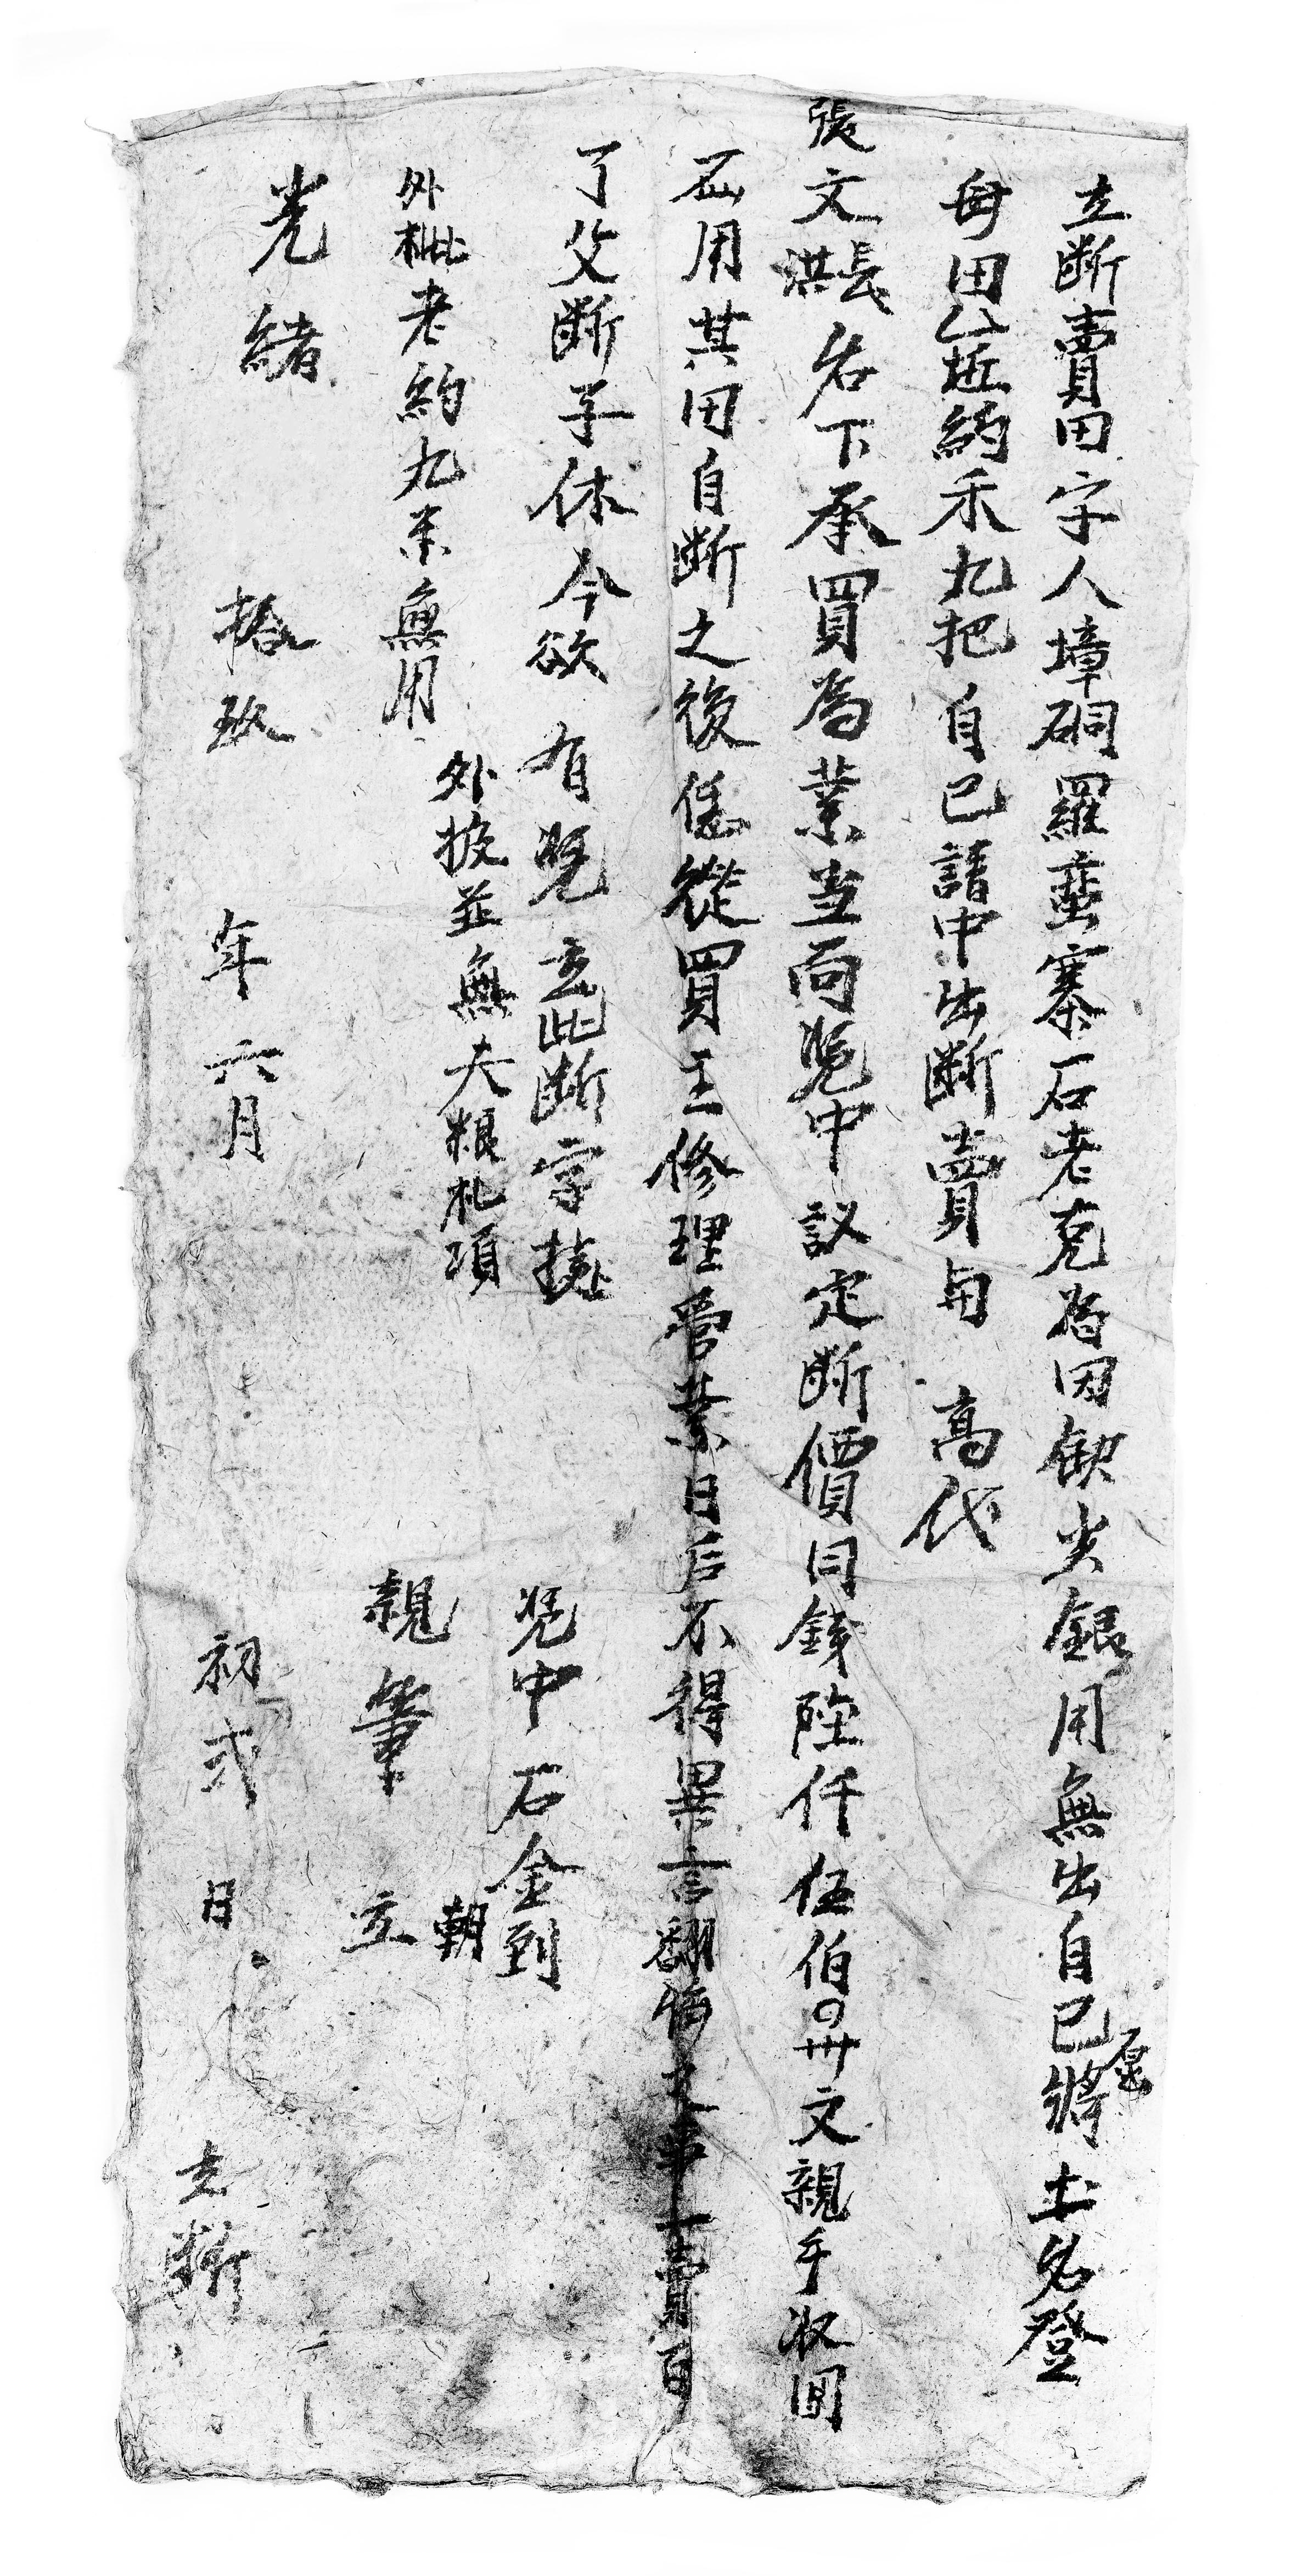 立斷賣田字人墇硐羅蛮寨石老克為因缺少銀用無出自己愿將土名登
毎田乙坵約禾九把自己請中出斷賣与 高代
張文洪長名下承買為業当面凴中議定斷價同錢陸仟伍伯〇卅文親手收囬
應用其田自斷之後任從買主修理管業日后不得異言翻悔之事一賣百
了父斷子休今欲有凴立此斷字據
外披並無夫粮札項
外枇老約九未無用
凴中 石金到
朝
親筆 立
光緒拾玖年六月初弍日 立斷